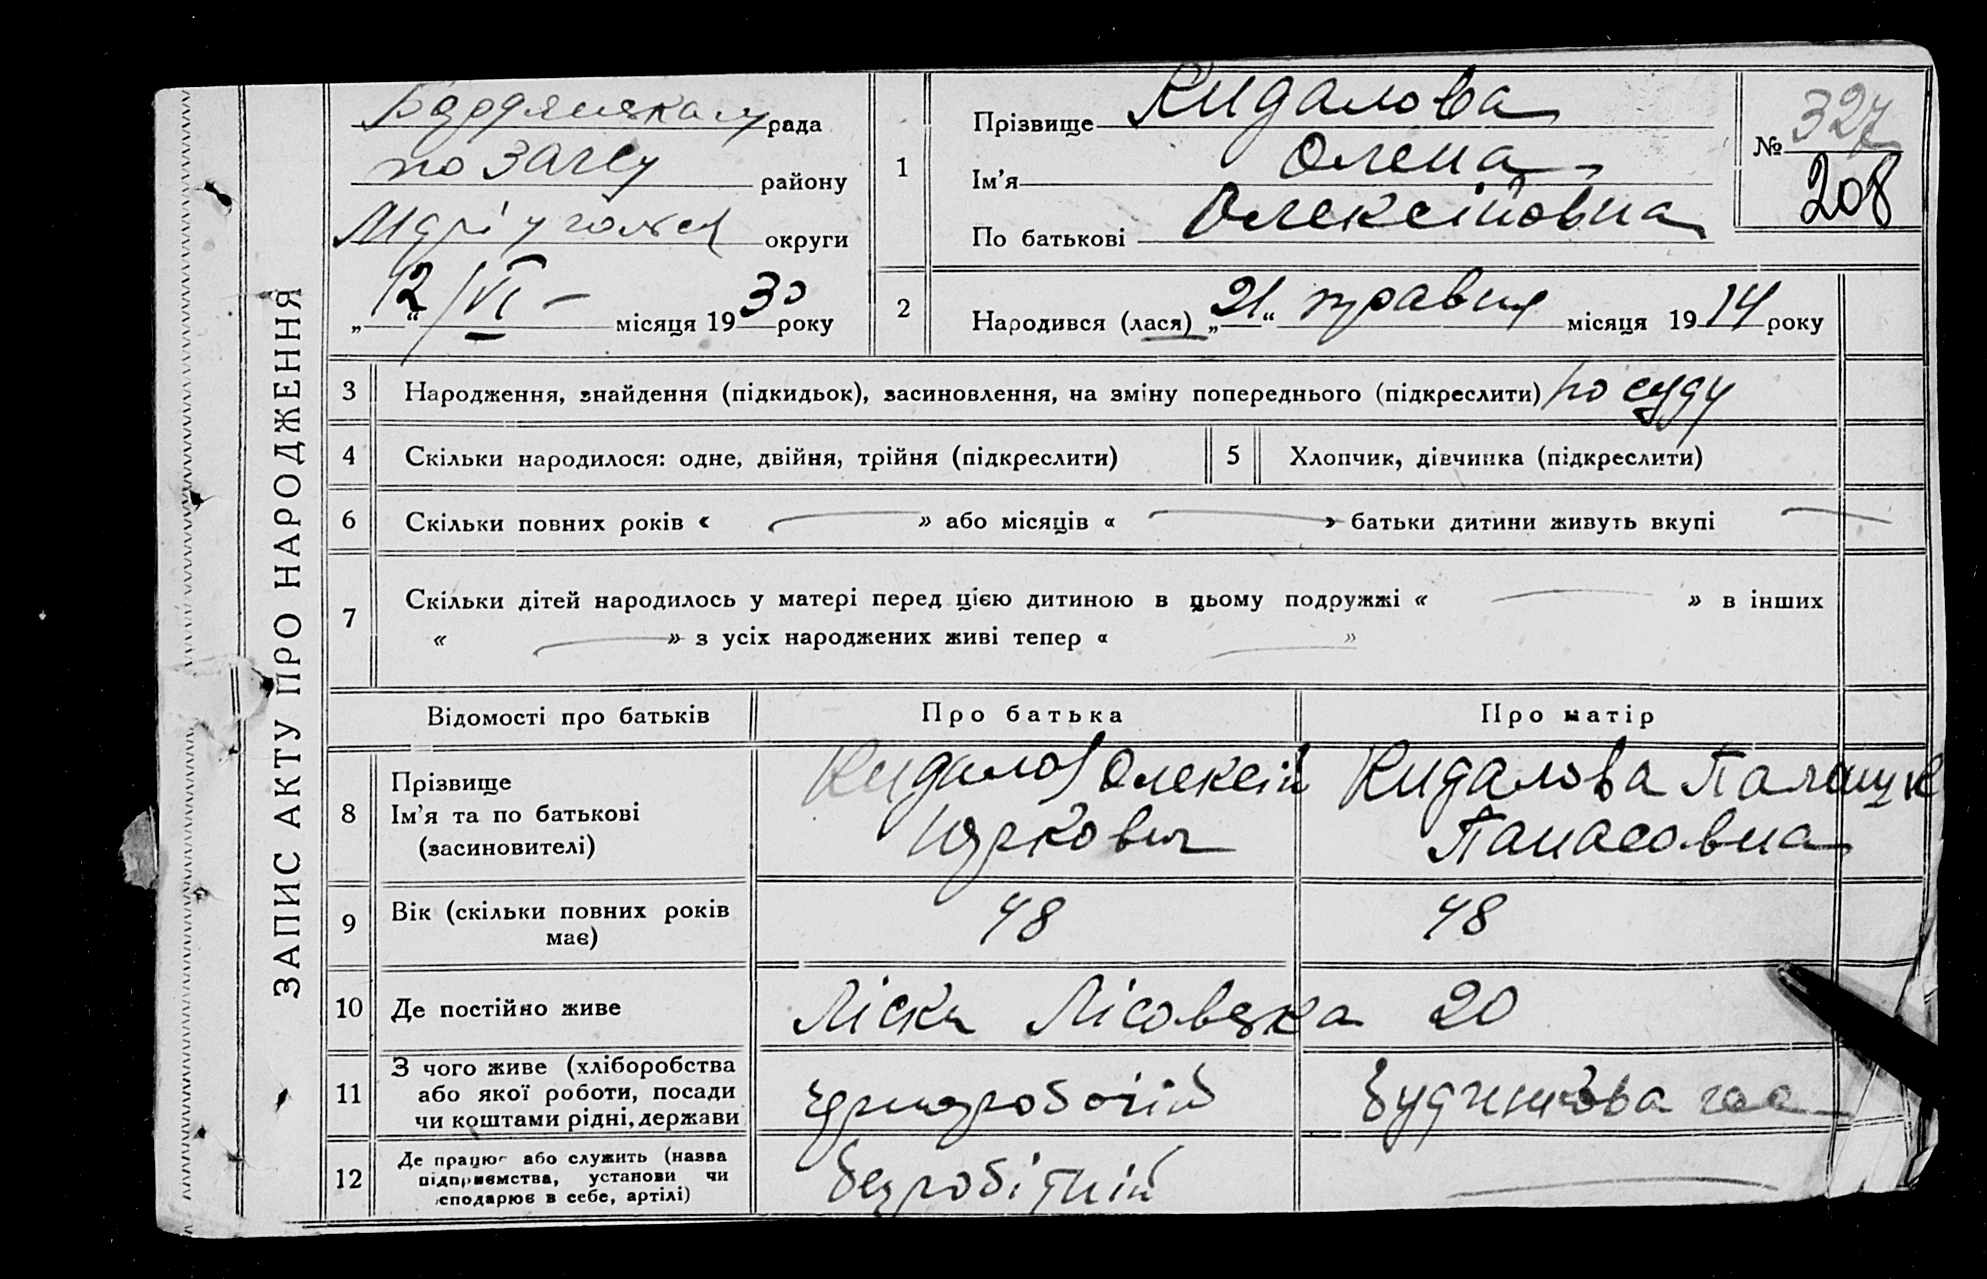 ЗАПИС АКТУ ПРО НАРОДЖЕННЯ
Бердянська м рада
по загсу району
Маріупольск округи
„12“ / VI – місяця 1930 року
1
Прізвище Кидалова
Ім’я Олена
По батькові Олексіївна
№ 327
208
2
Народився (лася) „21“ травня місяця 1914 року
3
Народження, знайдення (підкидьок), засиновлення, на зміну попереднього (підкреслити) по суду
4
Скільки народилося: одне, двійня, трійня (підкреслити)
5
Хлопчик, дівчинка (підкреслити)
6
Скільки повних років « — » або місяців « — » батьки дитини живуть вкупі —
7
Скільки дітей народилось у матері перед цією дитиною в цьому подружжі « — » в інших
« — » з усіх народжених живі тепер « — »
Відомості про батьків
Про батька
Про матір
8
Прізвище
Ім’я та по батькові
(засиновителі)
Кидалов Олексій
Кидалова
Панасовна
9
Вік (скільки повних років
має)
48
48
10
Де постійно живе
Ліски Лісовська 20
11
З чого живе (хліборобства
або якої роботи, посади
чи коштами рідні, держави
чорноробочій
12
Де працює або служить (назва
підприємства, установи чи
господарює в себе, артілі)
безробітній
—